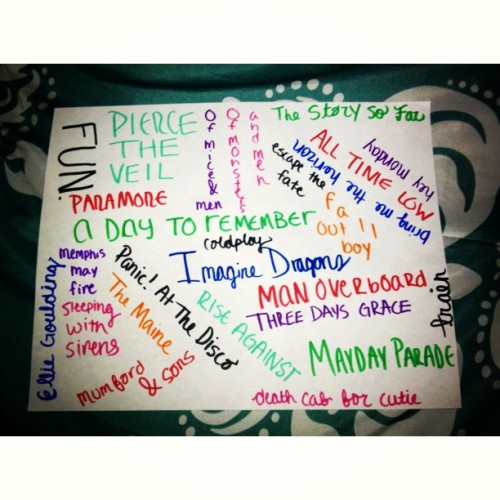 FUN.
PIERCE
THE
VEIL
Of mice &
men
Of monsters
and men
The Story So Far
ALL TIME LOW
hey monday
bring me the horizon
escape the
fate
PARAMORE
fa
out ll
boy
a DAY TO remember
coldplay
memphis
may
fire
Imagine Dragons
Panic! At The Disco
MAN OVERBOARD
train
Ellie Goulding
The Maine
RISE AGAINST
THREE DAYS GRACE
sleeping
with
sirens
MAYDAY PARADE
mumford
& sons
death cab for cutie